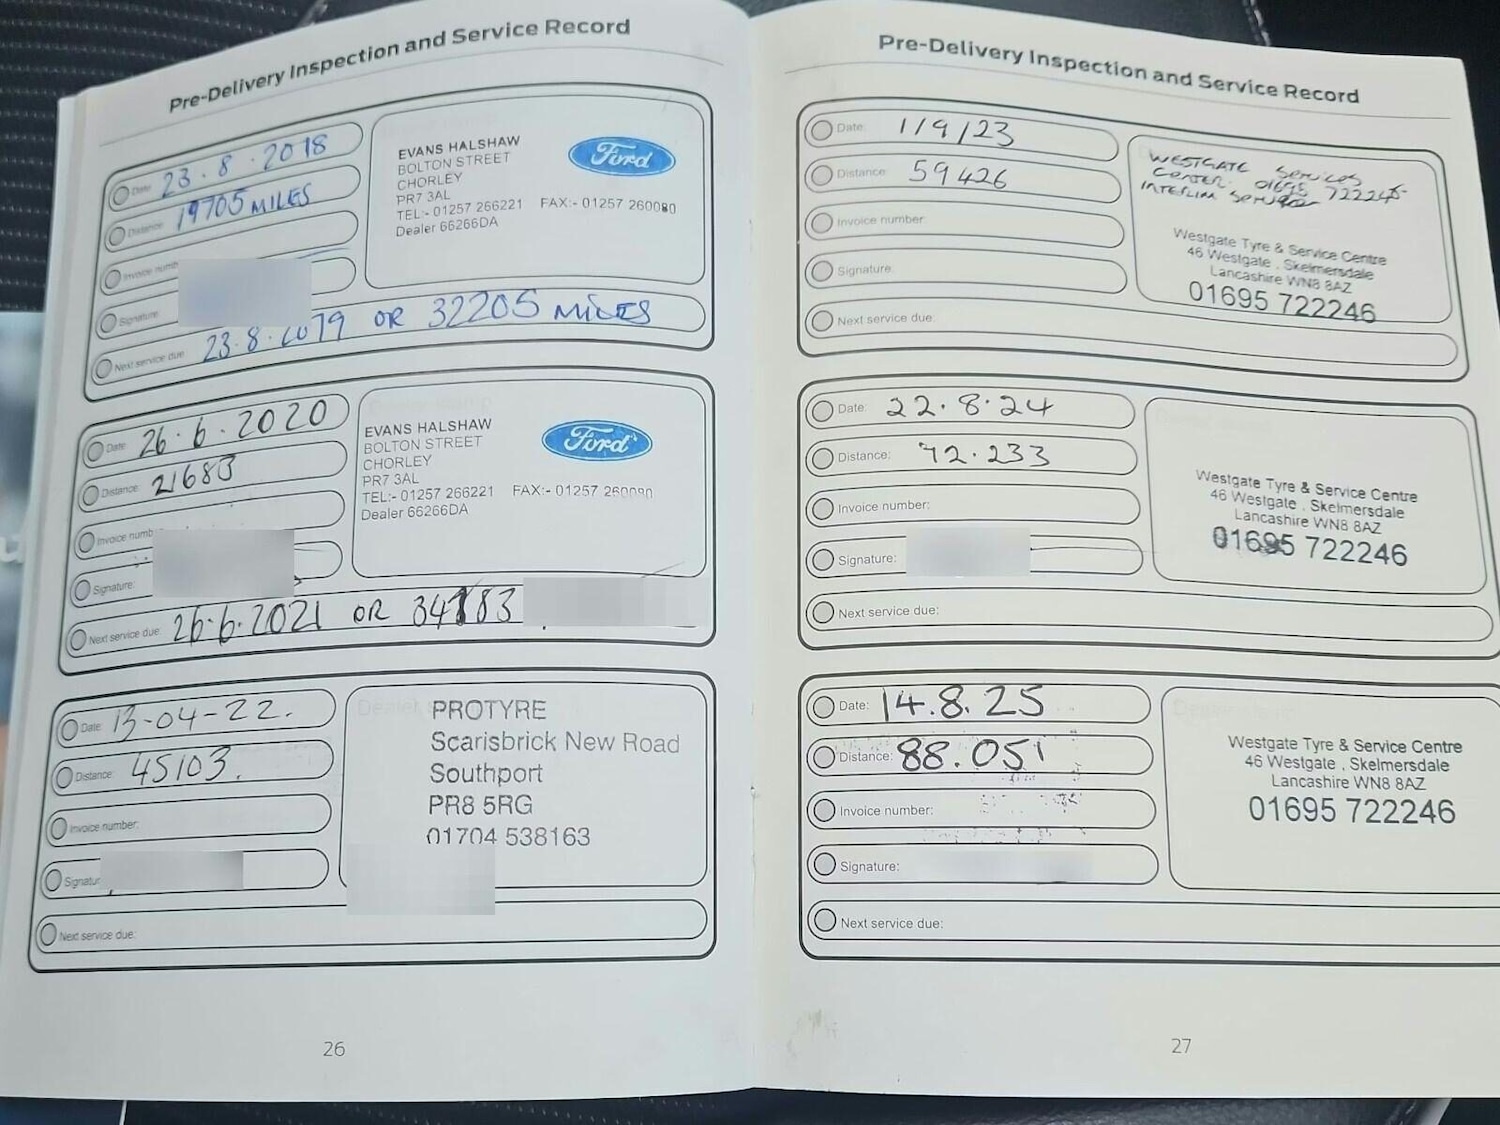 Pre-Delivery Inspection and Service Record
Date: 23.8.2018
Distance: 19705 MILES
Invoice numb
Signature:
Next service due: 23.8.2019 OR 32205 MILES
EVANS HALSHAW
BOLTON STREET
CHORLEY
PR7 3AL
TEL:- 01257 266221 FAX:- 01257 260080
Dealer 66266DA
Ford
Date: 26.6.2020
Distance: 21683
Invoice numb
Signature:
Next service due: 26.6.2021 OR 34183
EVANS HALSHAW
BOLTON STREET
CHORLEY
PR7 3AL
TEL:- 01257 266221 FAX:- 01257 260080
Dealer 66266DA
Ford
Date: 13-04-22.
Distance: 45103.
Invoice number:
Signatur
Next service due:
PROTYRE
Scarisbrick New Road
Southport
PR8 5RG
01704 538163
26
Pre-Delivery Inspection and Service Record
Date: 1/9/23
Distance: 59426
Invoice number:
Signature:
Next service due:
WESTGATE Services
CENTER. 01695 722245
INTERIM
Westgate Tyre & Service Centre
46 Westgate , Skelmersdale
Lancashire WN8 8AZ
01695 722246
Date: 22.8.24
Distance: 72.233
Invoice number:
Signature:
Next service due:
Westgate Tyre & Service Centre
46 Westgate , Skelmersdale
Lancashire WN8 8AZ
01695 722246
Date: 14.8.25
Distance: 88.051
Invoice number:
Signature:
Next service due:
Westgate Tyre & Service Centre
46 Westgate , Skelmersdale
Lancashire WN8 8AZ
01695 722246
27